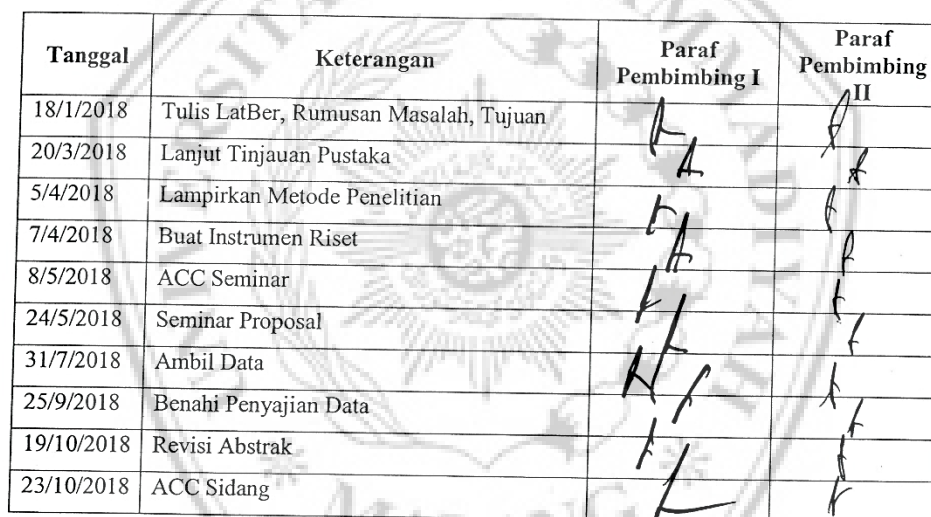 Tanggal Keterangan Paraf Pembimbing I Paraf Pembimbing II
18/1/2018 Tulis LatBer, Rumusan Masalah, Tujuan
20/3/2018 Lanjut Tinjauan Pustaka
5/4/2018 Lampirkan Metode Penelitian
7/4/2018 Buat Instrumen Riset
8/5/2018 ACC Seminar
24/5/2018 Seminar Proposal
31/7/2018 Ambil Data
25/9/2018 Benahi Penyajian Data
19/10/2018 Revisi Abstrak
23/10/2018 ACC Sidang